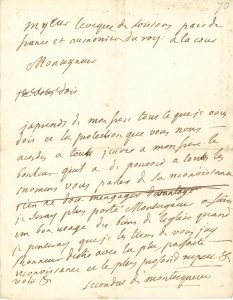 70
mgeur leveque de soissons pair de
france et aumonier du roy: a la cour
Monseigneur
je dois
japrends de mon frere tout ce que je vous
dois et la protection que vous nous
a toute mon frere le
bonheur quil a de pouvoir a tous les
momens vous parler de ma reconoissance
rien ne doit menager davantage
je seray plus porté Monseigneur a faire
un bon usage des biens de leglise quand
je penseray que je les tiens de vous jay
lhonneur detre avec la plus parfaite
reconoissance et le plus profond respect &
votre &
secondat de montesquieu